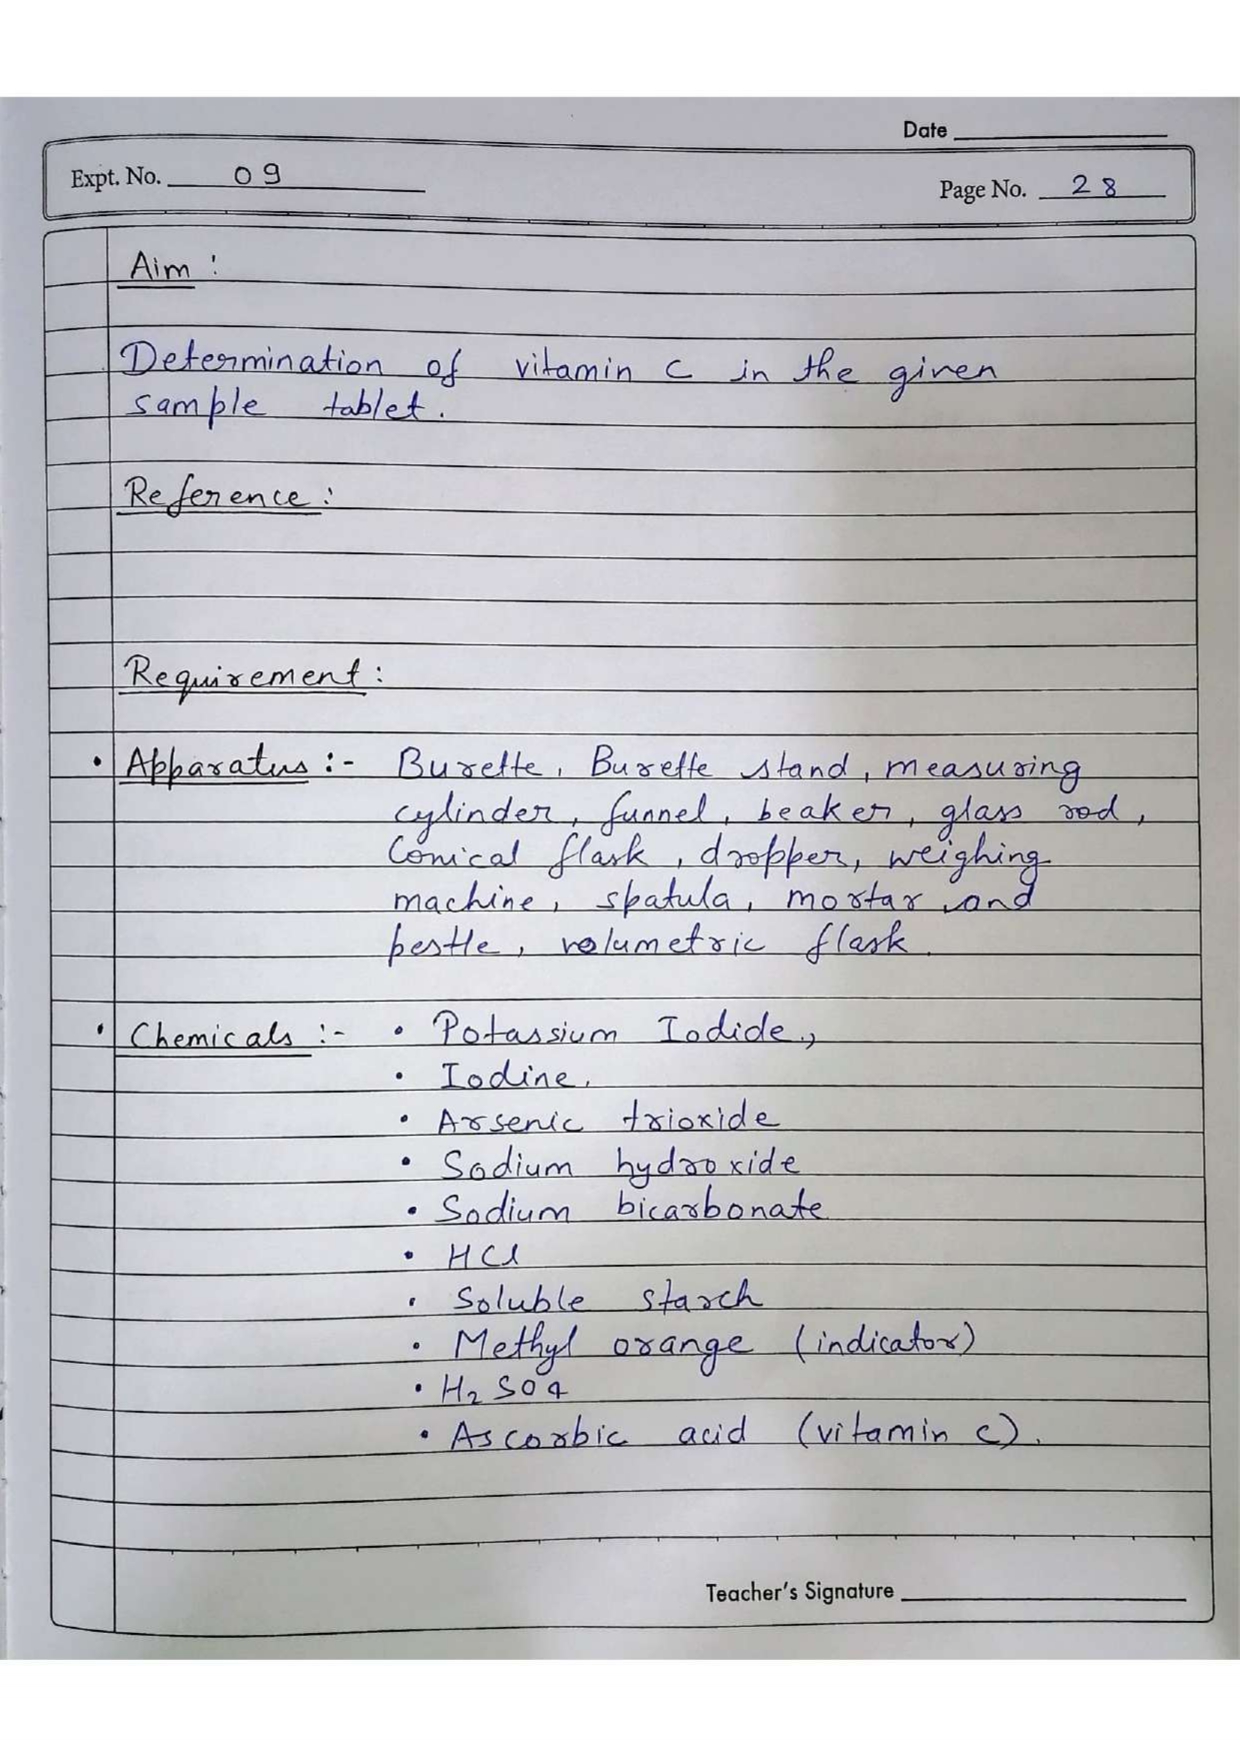 Date
Expt. No. 09
Page No. 28
Aim :
Determination of vitamin C in the given
sample tablet.
Reference :
Requirement :
• Apparatus :- Burette, Burette stand, measuring
cylinder, funnel, beaker, glass rod,
Conical flask, dropper, weighing
machine, spatula, mortar and
pestle, volumetric flask.
• Chemicals :- • Potassium Iodide,
• Iodine,
• Arsenic trioxide
• Sodium hydroxide
• Sodium bicarbonate
• HCl
• Soluble starch
• Methyl orange (indicator)
• H2SO4
• Ascorbic acid (vitamin c).
Teacher's Signature